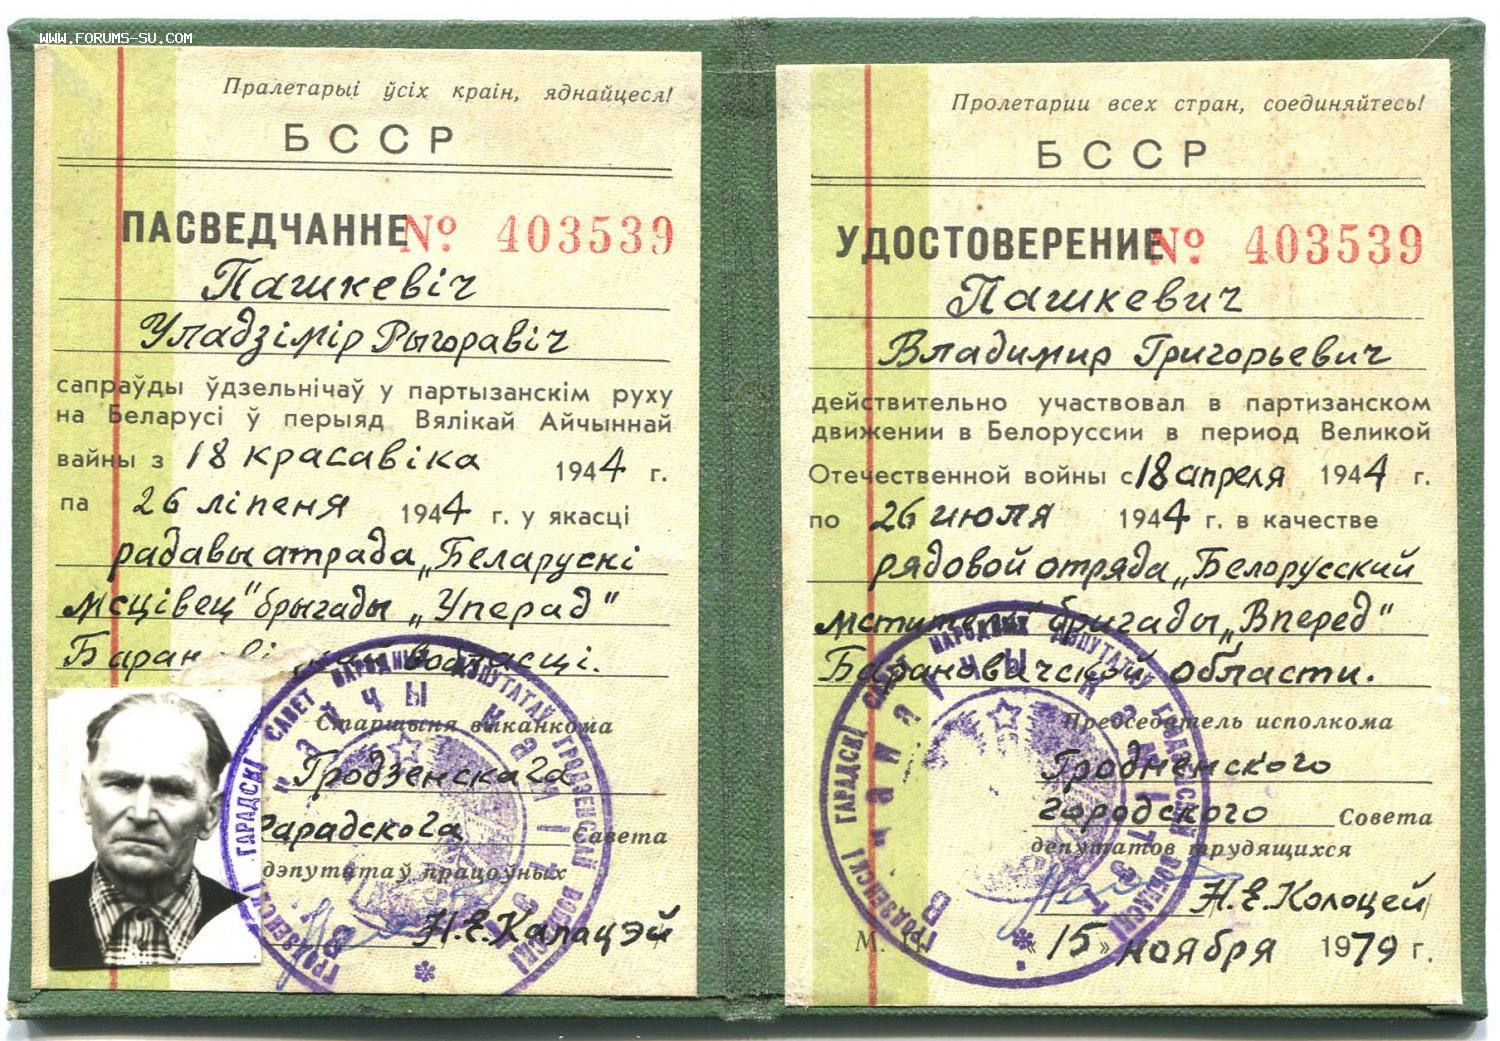 WWW.FORUMS-SU.COM
Пралетарыі ўсіх краін, яднайцеся!
БССР
ПАСВЕДЧАННЕ № 403539
Пашкевіч
Уладзімір Рыгоравіч
сапраўды ўдзельнічаў у партызанскім руху
на Беларусі ў перыяд Вялікай Айчыннай
вайны з 18 красавіка 1944 г.
па 26 ліпеня 1944 г. у якасці
радавы атрада „Беларускі
мсцівец" брыгады „Уперад"
вобласці.
Старшыня выканкома
Гродзенскага
гарадскога Савета
дэпутатаў працоўных
Н.Е.Калацэй
ГРОДЗЕНСКІ ГАРАДСКІ САВЕТ НАРОДНЫХ ДЭПУТАТАЎ ГРОДЗЕНСКАЙ ВОБЛАСЦІ
Пролетарии всех стран, соединяйтесь!
БССР
УДОСТОВЕРЕНИЕ № 403539
Пашкевич
Владимир Григорьевич
действительно участвовал в партизанском
движении в Белоруссии в период Великой
Отечественной войны с 18 апреля 1944 г.
по 26 июля 1944 г. в качестве
рядовой отряда „Белорусский
мститель" бригады „Вперед"
Барановичской области.
Председатель исполкома
Гродненского
городского Совета
депутатов трудящихся
Н.Е.Колоцей
М. П. «15» ноября 1979 г.